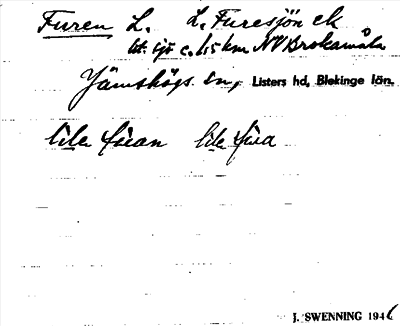 Furen L. L. Furesjön ek
lit. sjö c. 1.5 km NV Brokamåla
Jämshögs sn, Listers hd, Blekinge län.
lilə fúran lilə fúra
J. SWENNING 1946